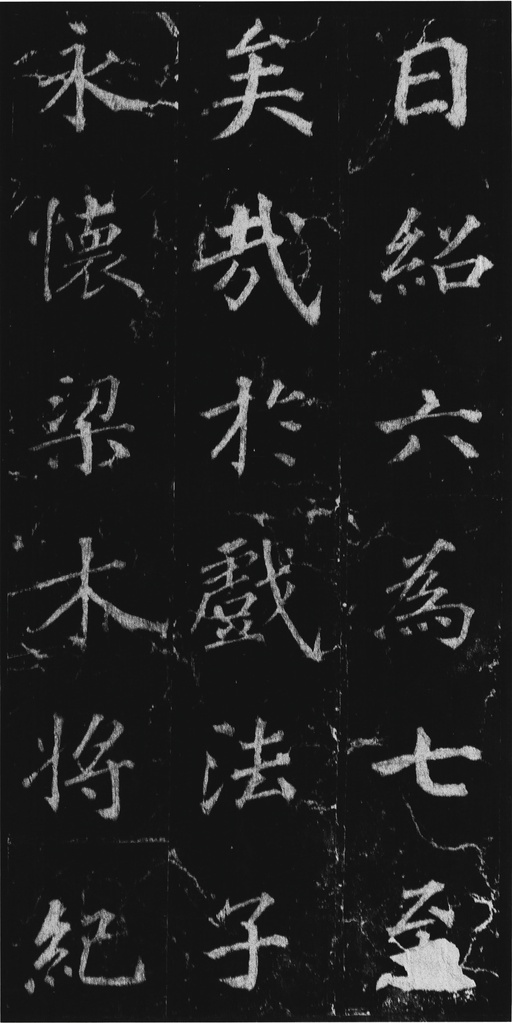 日紹六為七至
矣哉於戲法子
永懷梁木將紀